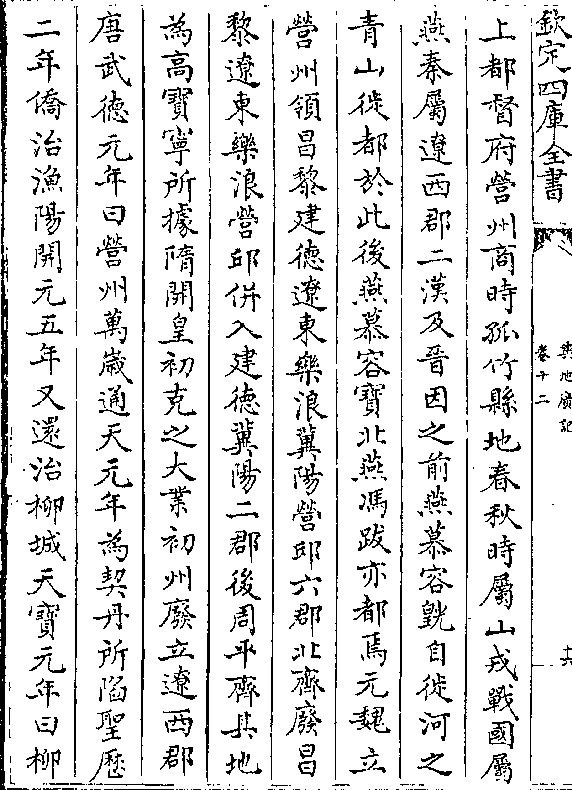 欽定四庫全書
輿地廣記
卷十二
十六
上都督府營州商時孤竹縣地春秋時屬山戎戰國屬
燕秦屬遼西郡二漢及晉因之前燕慕容皝自徙河之
青山徙都於此後燕慕容寶北燕馮跋亦都焉元魏立
營州領昌黎建德遼東樂浪冀陽營邱六郡北齊廢昌
黎遼東樂浪營邱併入建德冀陽二郡後周平齊其地
為高寶寧所據隋開皇初克之大業初州廢立遼西郡
唐武德元年曰營州萬歲通天元年為契丹所陷聖歷
二年僑治漁陽開元五年又還治柳城天寶元年曰柳